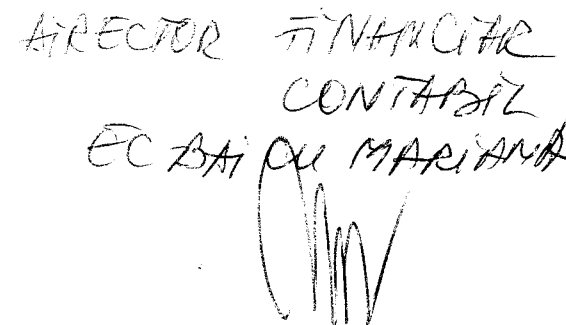 DIRECTOR FINANCIAR
CONTABIL
EC BAICU MARIANA